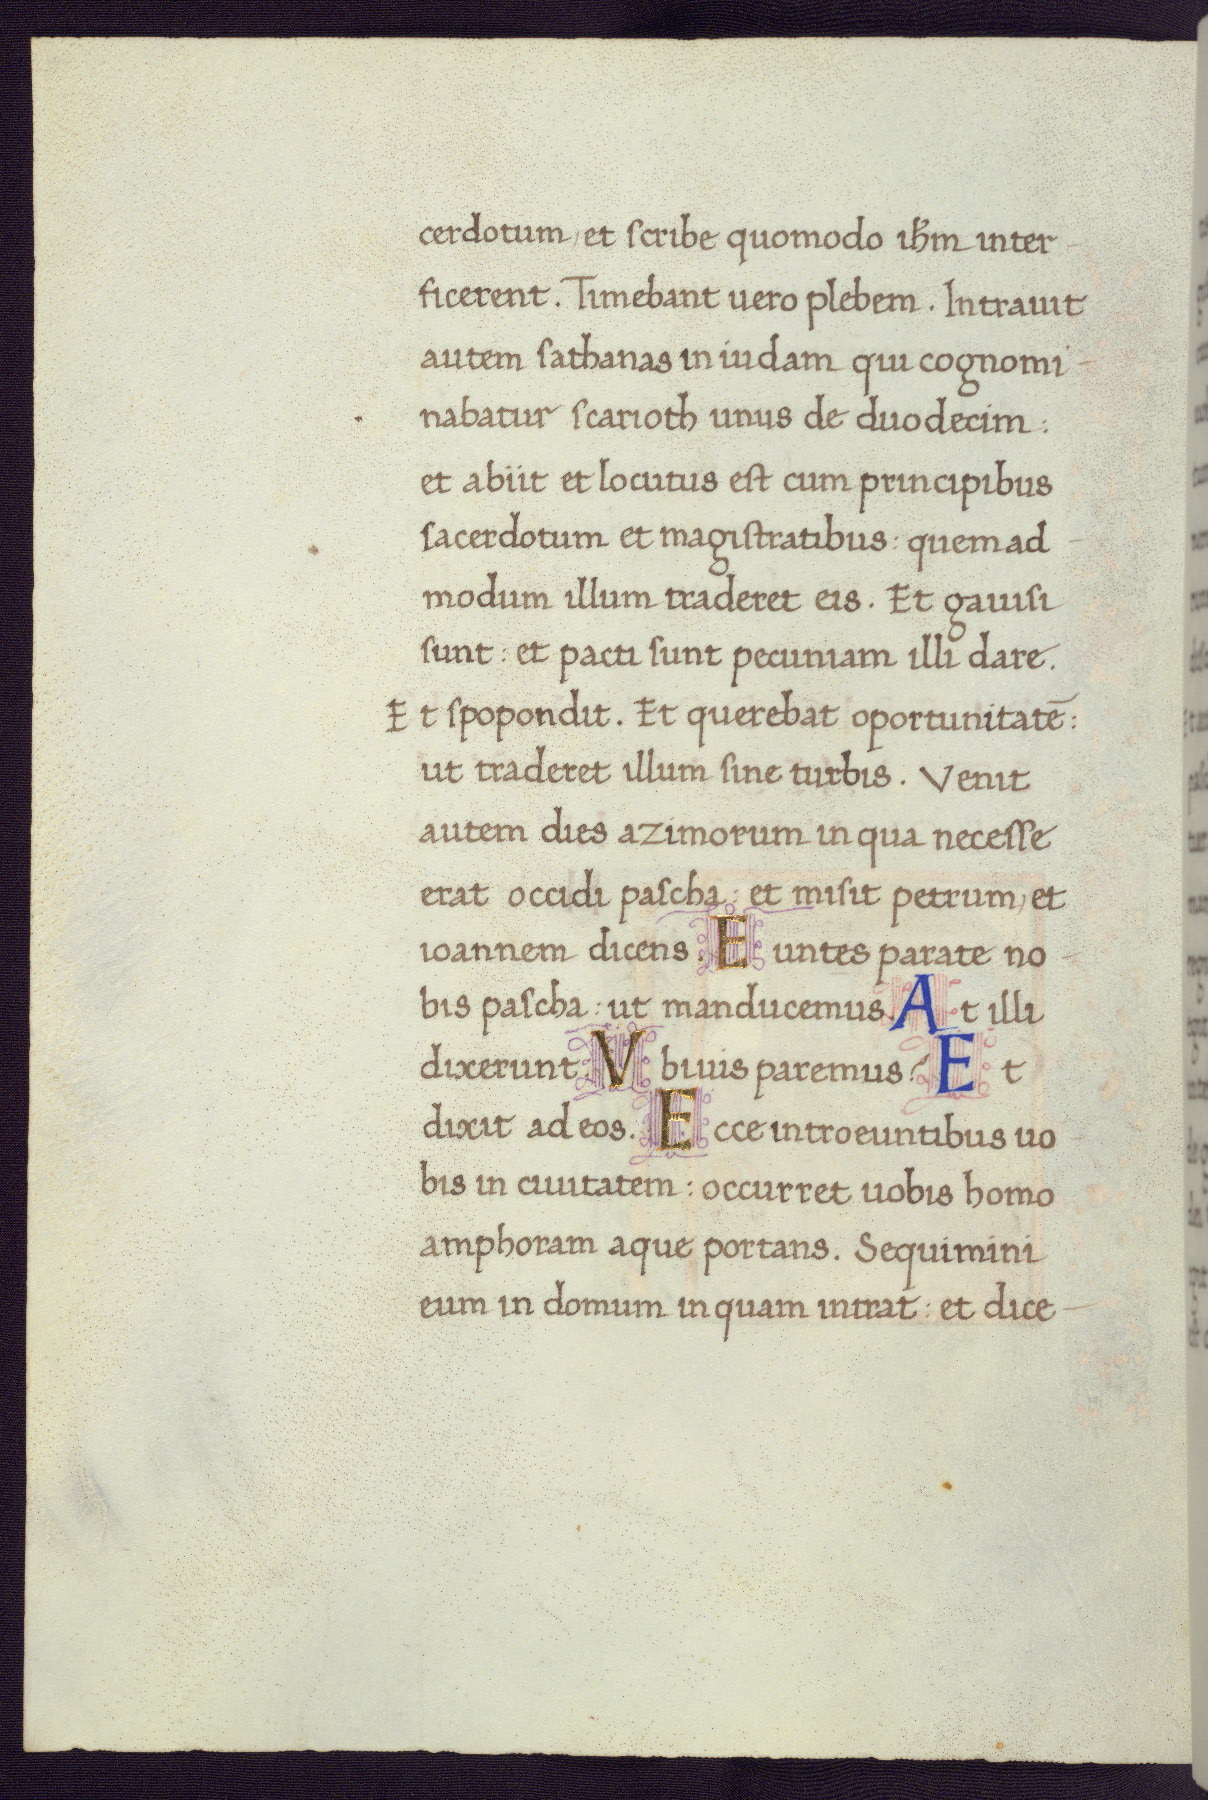 cerdotum, et scribe quomodo ihm̄ inter-
ficerent. Timebant uero plebem. Intrauit
autem sathanas in iudam qui cognomi-
nabatur scarioth unus de duodecim:
et abiit et locutus est cum principibus
sacerdotum et magistratibus: quemad-
modum illum traderet eis. Et gauisi
sunt: et pacti sunt pecuniam illi dare.
Et spopondit. Et querebat oportunitatē:
ut traderet illum sine turbis. Venit
autem dies azimorum in qua necesse
erat occidi pascha: et misit petrum, et
ioannem dicens: Euntes parate no-
bis pascha: ut manducemus. At illi
dixerunt: Vbi uis paremus? Et
dixit ad eos. Ecce introeuntibus uo-
bis in ciuitatem: occurret uobis homo
amphoram aque portans. Sequimini
eum in domum in quam intrat: et dice-